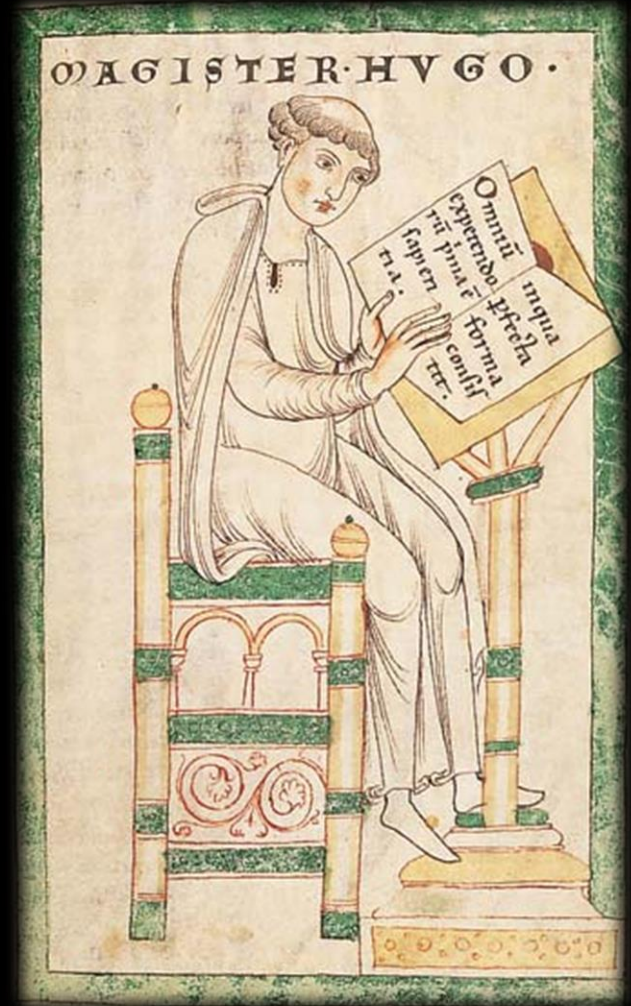 MAGISTER·HVGO·
Omniū
expetendo
rū p̓ma ē
sapien
tia.
inqua
ꝑfecta
forma
consis
tit.